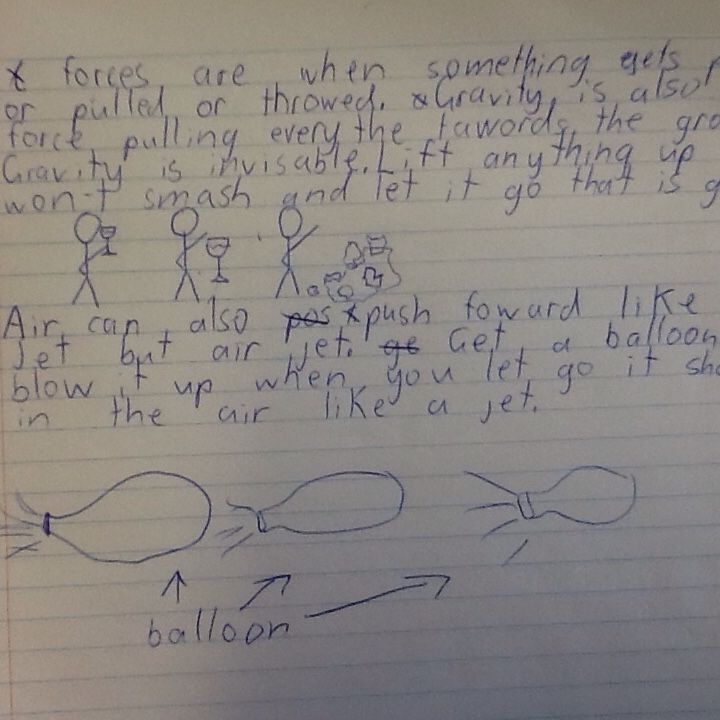 * forces are when something gets
or pulled or throwed. *Gravity is also
force pulling every the tawords the gro
Gravity is invisable. Lift anything up
won't smash and let it go that is g
Air can also pos * push foward like
Jet but air jet. ge Get a balloon
blow it up when you let go it sho
in the air like a jet.
balloon